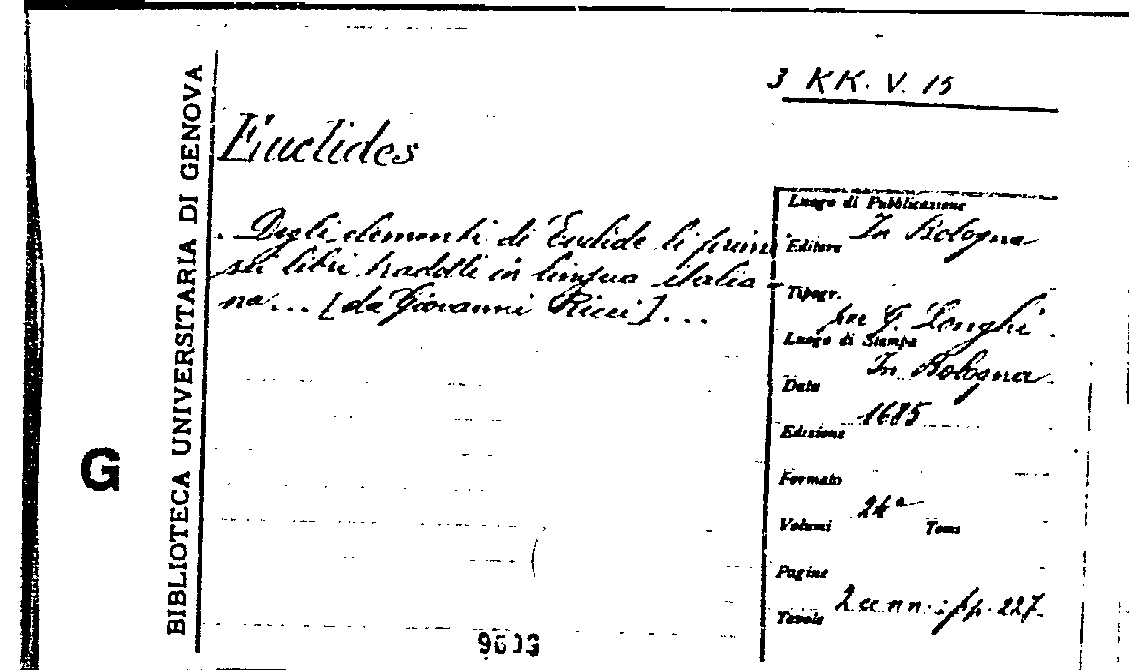 3 KK. V. 15
BIBLIOTECA UNIVERSITARIA DI GENOVA
G
Euclides
Degli elementi di Euclide li primi
sei libri tradotti in lingua italia-
na... [da Giovanni Ricci]...
Luogo di Pubblicazione
In Bologna
Editore
Tipogr.
per G. Longhi
Luogo di Stampa
In Bologna
Data
1685
Edizione
Formato
24°
Volumi Tomi
Pagine
2 cc nn.; pp. 227.
Tavole